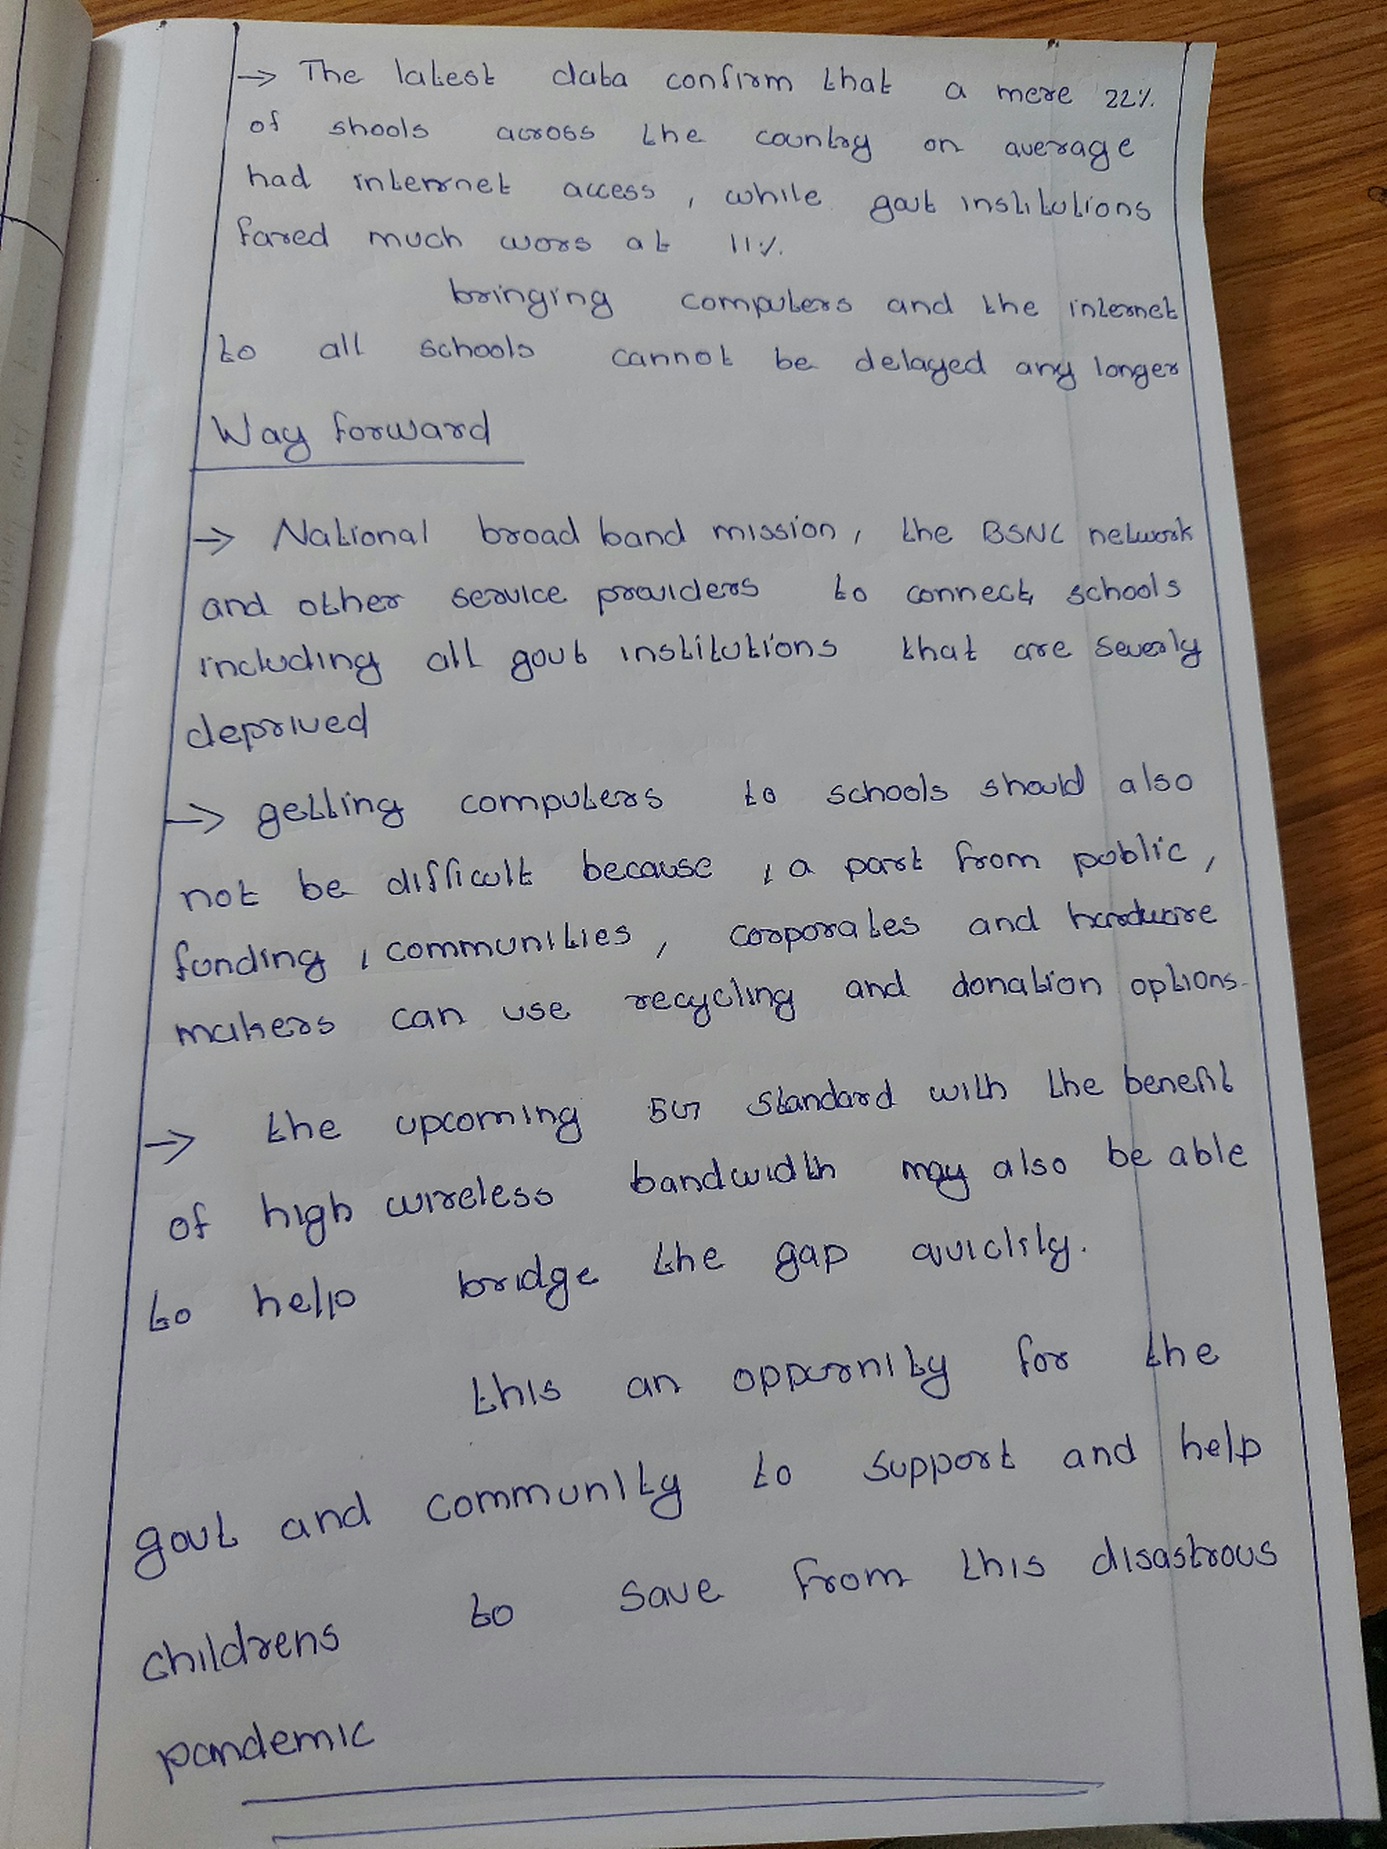 → The latest data confirm that a mere 22%
of shools across the country on average
had internet access, while govt institutions
fared much wors at 11%.
bringing computers and the internet
to all schools cannot be delayed any longer
Way forward
→ National broad band mission, the BSNL network
and other service providers to connect, schools
including all govt institutions that are severly
deprived
→ getting computers to schools should also
not be difficult because, a part from public,
funding, communities, corporates and hardware
makers can use recycling and donation options.
→ the upcoming 5G standard with the benefit
of high wireless bandwidth may also be able
to help bridge the gap quickly.
this an oppurnity for the
govt and community to support and help
childrens to save from this disastrous
pandemic